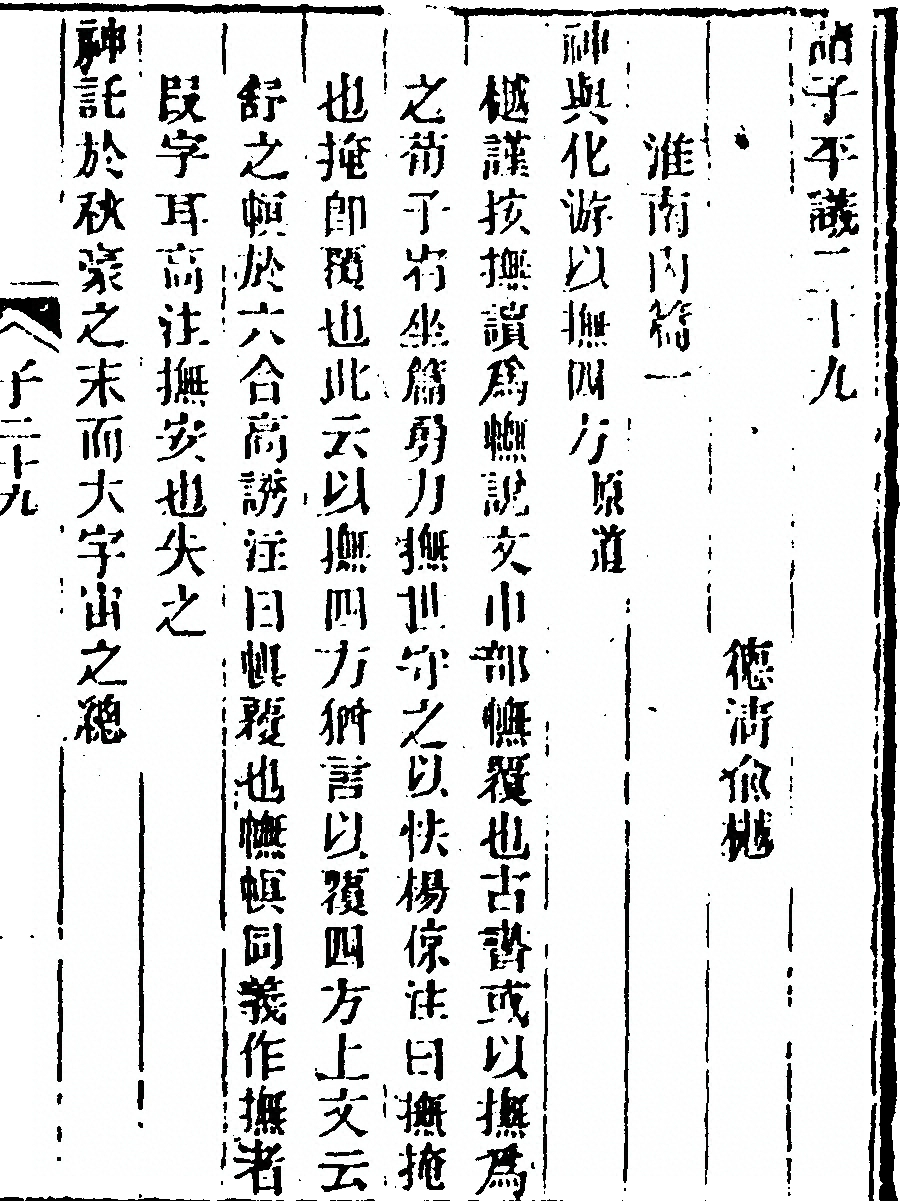 諸子平議二十九
德淸俞樾
淮南內篇一
神與化游以撫四方原道
樾謹按撫讀爲幠說文巾部幠覆也古書或以撫爲
之荀子宥坐篇勇力撫世守之以怯楊倞注曰撫掩
也掩卽覆也此云以撫四方猶言以覆四方上文云
舒之幎於六合高誘注曰幎覆也幠幎同義作撫者
叚字耳高注撫安也失之
神託於秋豪之末而大宇宙之總
子二十九